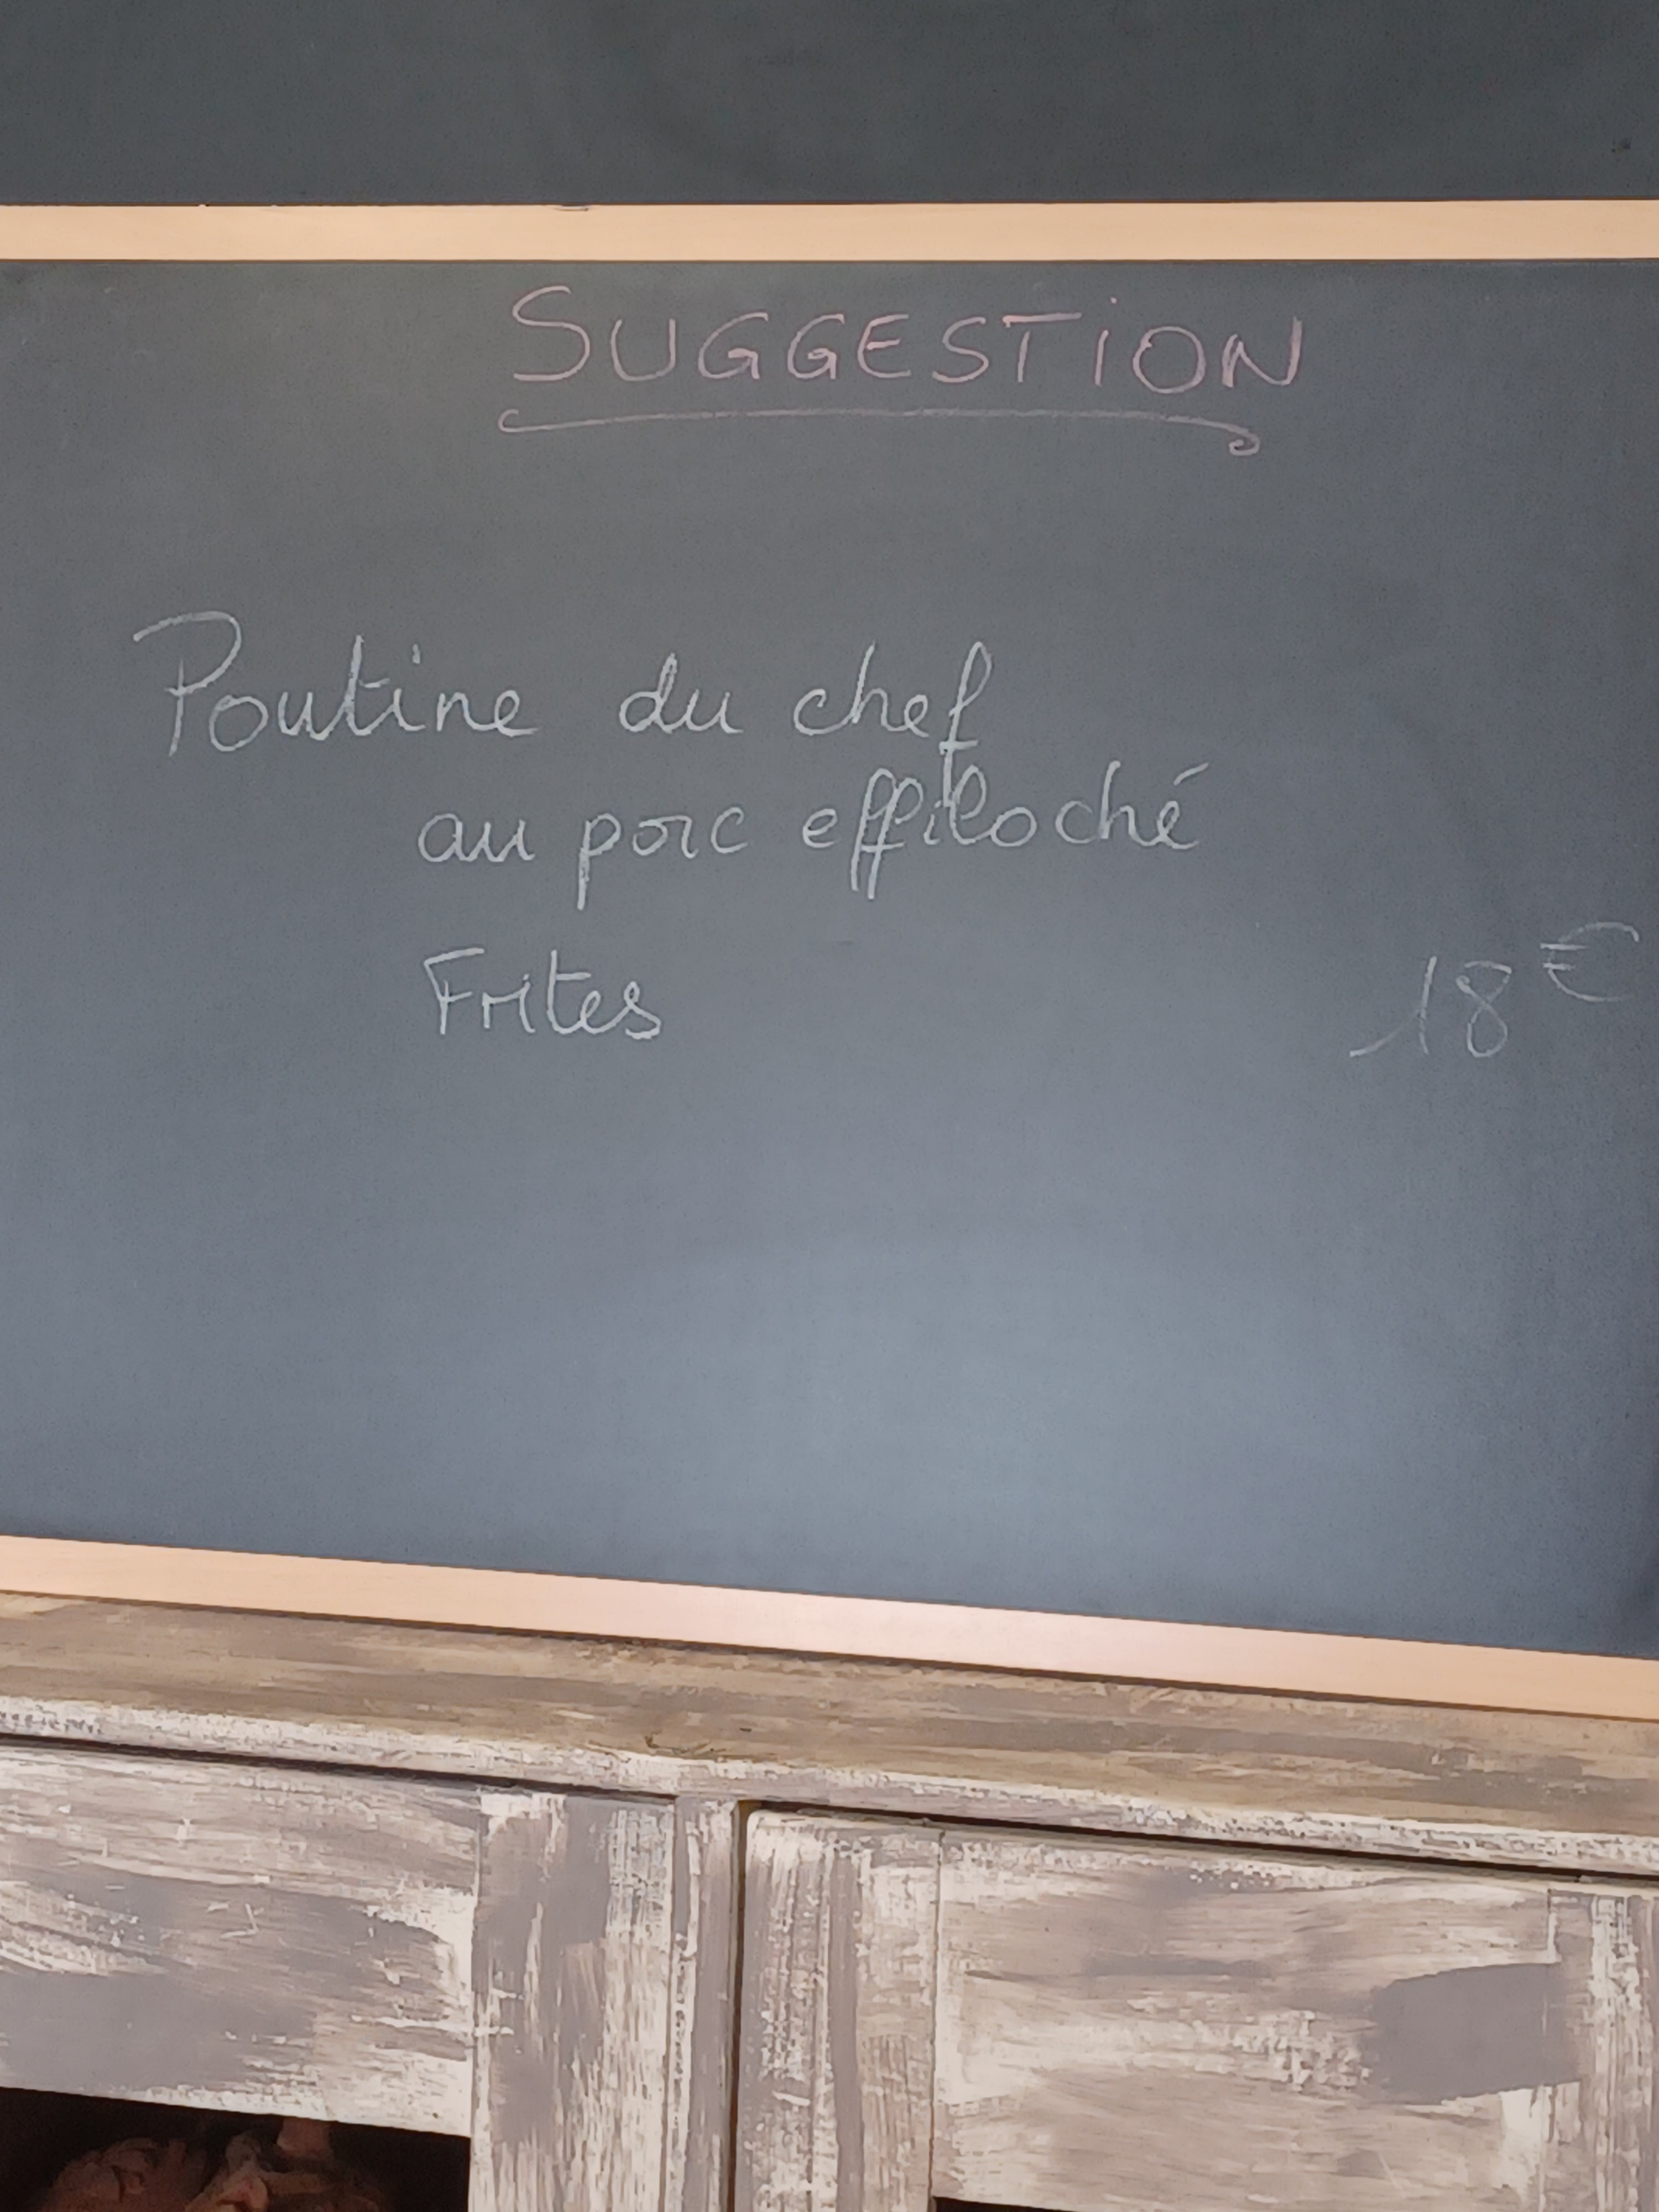 SUGGESTiON
Poutine du chef
au porc effiloché
Frites
18€